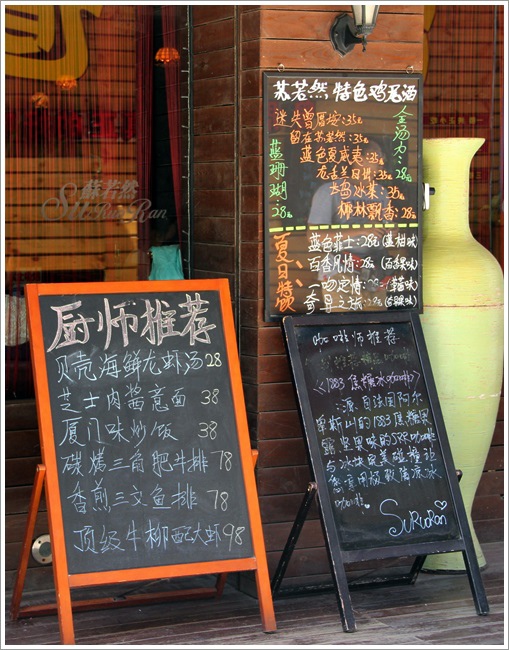 厨师推荐
贝壳海鲜龙虾汤 28
芝士肉酱意面 38
厦门味炒饭 38
碳烤三角肥牛排 78
香煎三文鱼排 78
顶级牛柳配大虾 98
苏若然 特色鸡尾酒
迷失曾厝垵:35元
留在苏若然:35元
蓝色夏威夷:35元
龙舌兰日出:35元
长岛冰茶:35元
椰林飘香:28元
金汤力:28元
蓝珊瑚:28元
夏日特饮
蓝色菲士:28元(蓝柑味)
百香风情:28元(百香果味)
一吻定情:28元
奇异之旅:28元
咖啡师推荐
《1883焦糖冰
源自法国阿尔
卑斯山的1883焦糖果
露 坚果味的
与冰块
SuRuoRan
蘇若然
Su Ruo Ran